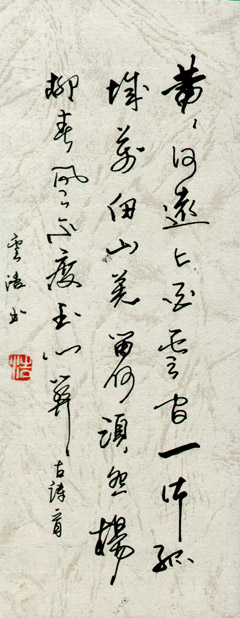 黃河遠上白雲間一片孤
城萬仞山羌笛何須怨楊
柳春風不度玉門關 古詩一首
雲 書